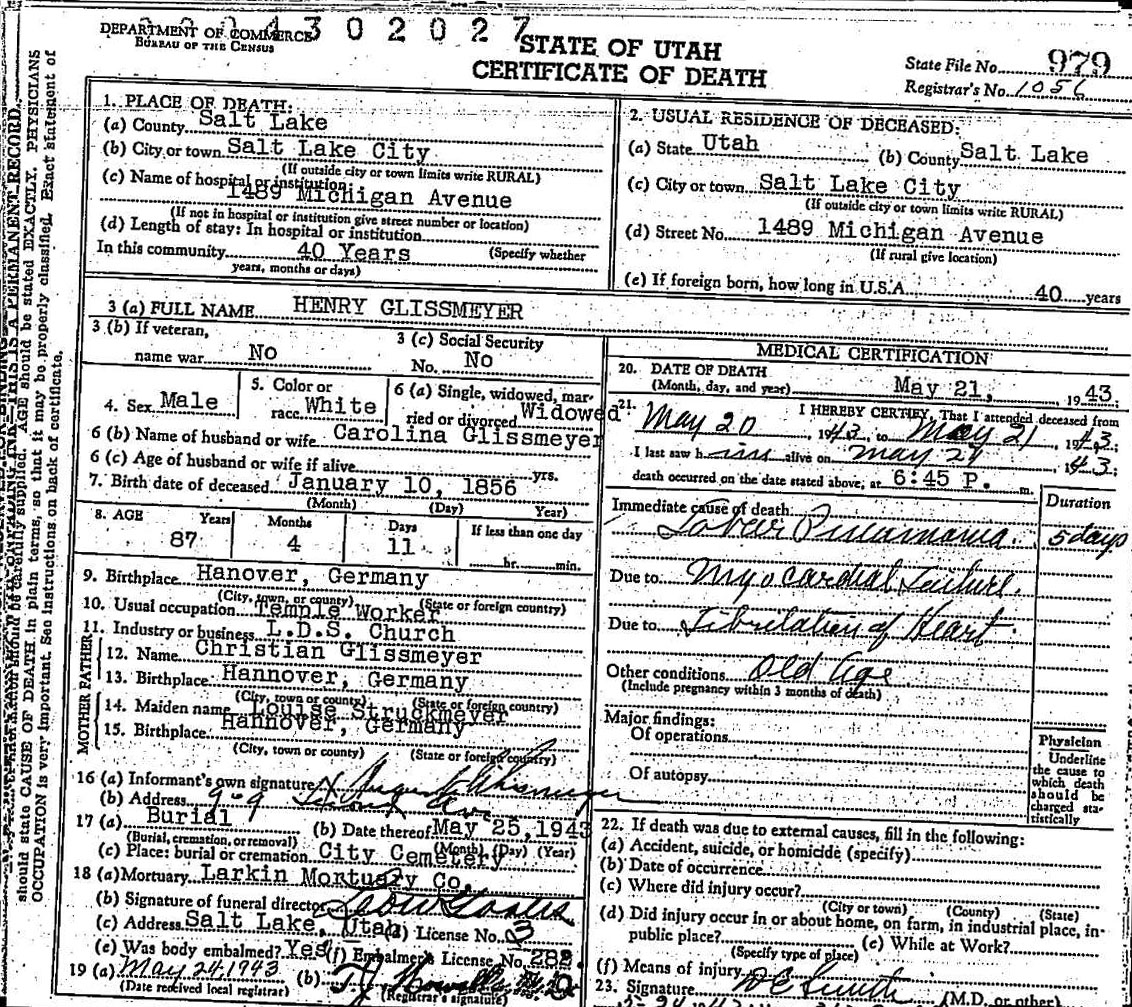 DEPARTMENT OF COMMERCE
BUREAU OF THE CENSUS
4 3 0 2 0 2 7
STATE OF UTAH
CERTIFICATE OF DEATH
State File No. 979
Registrar's No. 1056
1. PLACE OF DEATH:
(a) County Salt Lake
(b) City or town Salt Lake City
(If outside city or town limits write RURAL)
(c) Name of hospital or institution
1489 Michigan Avenue
(If not in hospital or institution give street number or location)
(d) Length of stay: In hospital or institution
In this community 40 Years (Specify whether
years, months or days)
2. USUAL RESIDENCE OF DECEASED:
(a) State Utah (b) County Salt Lake
(c) City or town Salt Lake City
(If outside city or town limits write RURAL)
(d) Street No. 1489 Michigan Avenue
(If rural give location)
(e) If foreign born, how long in U.S.A. 40 years
3 (a) FULL NAME HENRY GLISSMEYER
3 (b) If veteran,
name war No
3 (c) Social Security
No. No
4. Sex Male
5. Color or
race White
6 (a) Single, widowed, mar-
ried or divorced Widowed
6 (b) Name of husband or wife Carolina Glissmeyer
6 (c) Age of husband or wife if alive yrs.
7. Birth date of deceased January 10, 1856
(Month) (Day) Year)
8. AGE Years Months Days If less than one day
87 4 11 hr. min.
9. Birthplace Hanover, Germany
(City, town, or county) (State or foreign country)
10. Usual occupation Temple Worker
11. Industry or business L.D.S. Church
FATHER
12. Name Christian Glissmeyer
13. Birthplace Hannover, Germany
(City, town or county) (State or foreign country)
MOTHER
14. Maiden name Louise Struckmeyer
15. Birthplace Hannover, Germany
(City, town or county) (State or foreign country)
16 (a) Informant's own signature X
(b) Address
17 (a) Burial (b) Date thereof May 25, 1943
(Burial, cremation, or removal) (Month) (Day) (Year)
(c) Place: burial or cremation City Cemetery
18 (a) Mortuary Larkin Mortuary Co.
(b) Signature of funeral director
(c) Address Salt Lake, Utah (d) License No. 3
(e) Was body embalmed? Yes (f) Embalmer's License No. 282
19 (a) May 24, 1943 (b)
(Date received local registrar) (Registrar's signature)
MEDICAL CERTIFICATION
20. DATE OF DEATH
(Month, day, and year) May 21, 1943.
21. I HEREBY CERTIFY, That I attended deceased from
May 20 1943 to May 21, 1943;
I last saw him alive on May 1943;
death occurred on the date stated above, at 6:45 P. m.
Immediate cause of death Duration
Lobar Pneumonia. 5 days
Due to Myocardial Failure.
Due to Fibrelation of Heart.
Other conditions Old Age
(Include pregnancy within 3 months of death)
Major findings:
Of operations
Of autopsy
Physician
Underline
the cause to
which death
should be
charged sta-
tistically
22. If death was due to external causes, fill in the following:
(a) Accident, suicide, or homicide (specify)
(b) Date of occurrence
(c) Where did injury occur?
(City or town) (County) (State)
(d) Did injury occur in or about home, on farm, in industrial place, in-
public place? (e) While at Work?
(Specify type of place)
(f) Means of injury
23. Signature (M.D. or other)
should state CAUSE OF DEATH in plain terms, so that it may be properly classified. Exact statement of
OCCUPATION is very important. See instructions on back of certificate.
AGE should be stated EXACTLY. PHYSICIANS
THIS IS A PERMANENT RECORD.